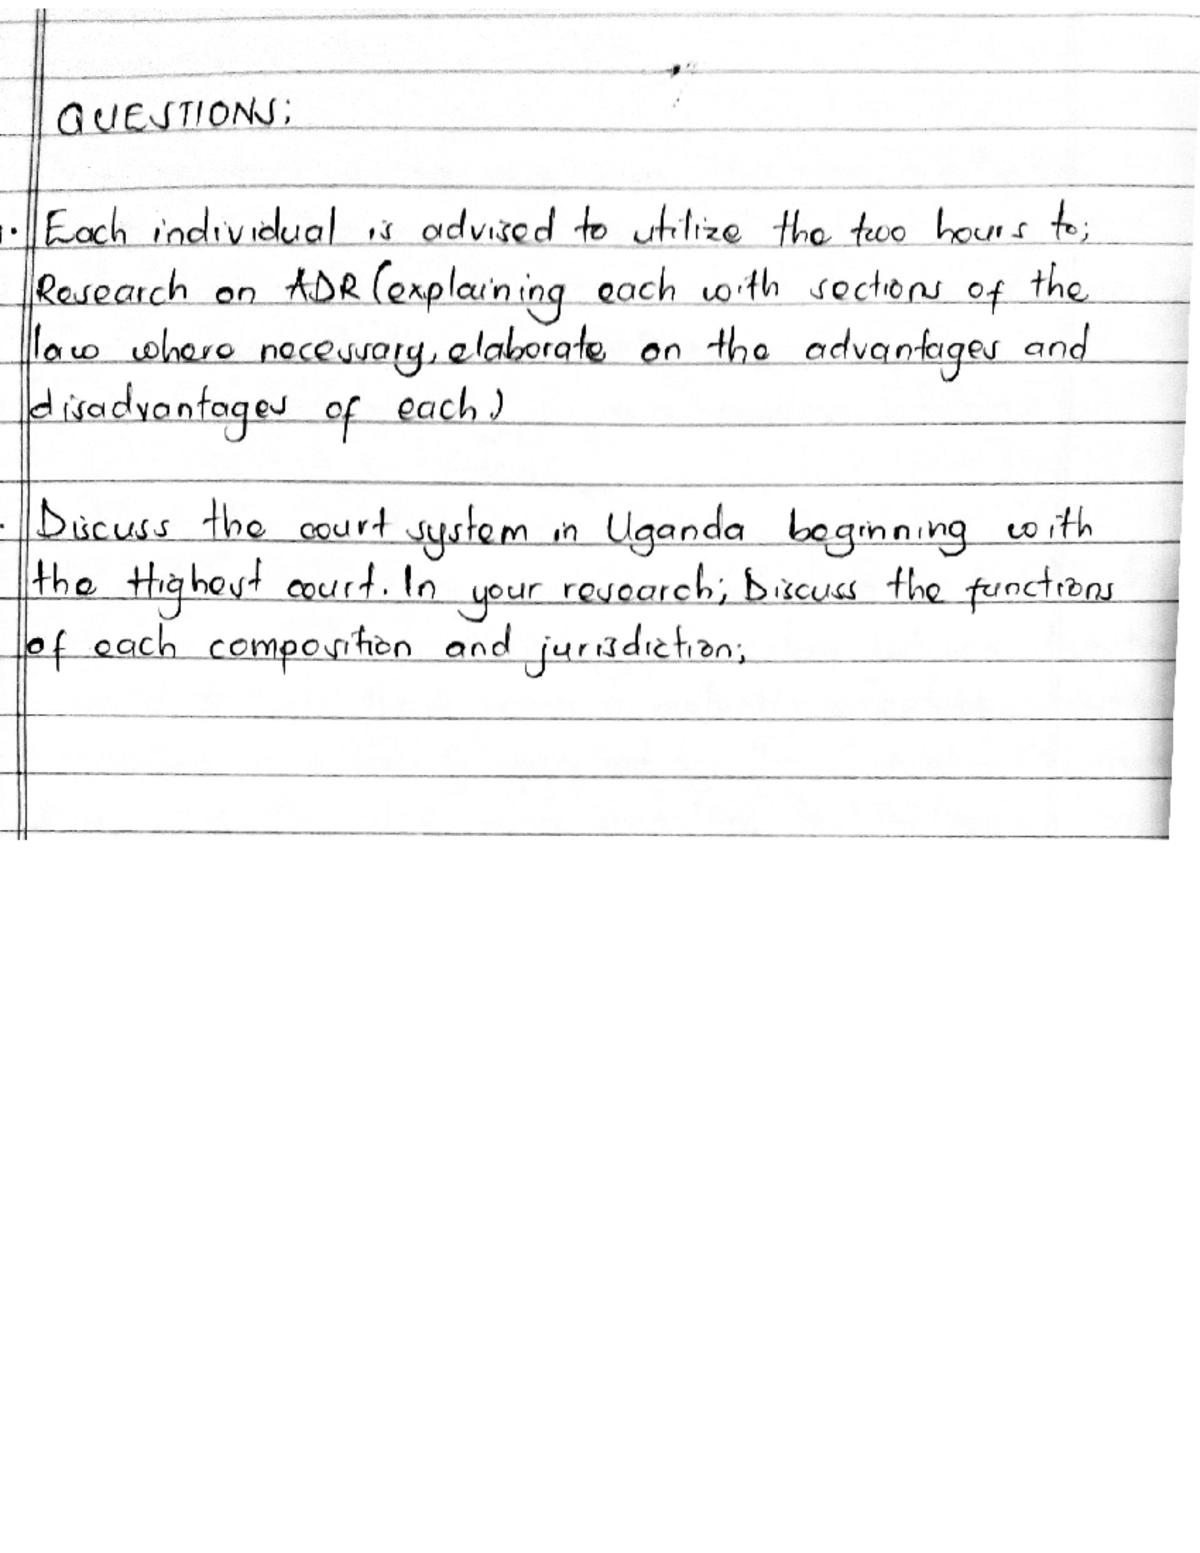 QUESTIONS;
1. Each individual is advised to utilize the two hours to;
Research on ADR (explaining each with sections of the
law where necessary, elaborate on the advantages and
disadvantages of each)
Discuss the court system in Uganda beginning with
the Highest court. In your research; Discuss the functions
of each composition and jurisdiction;